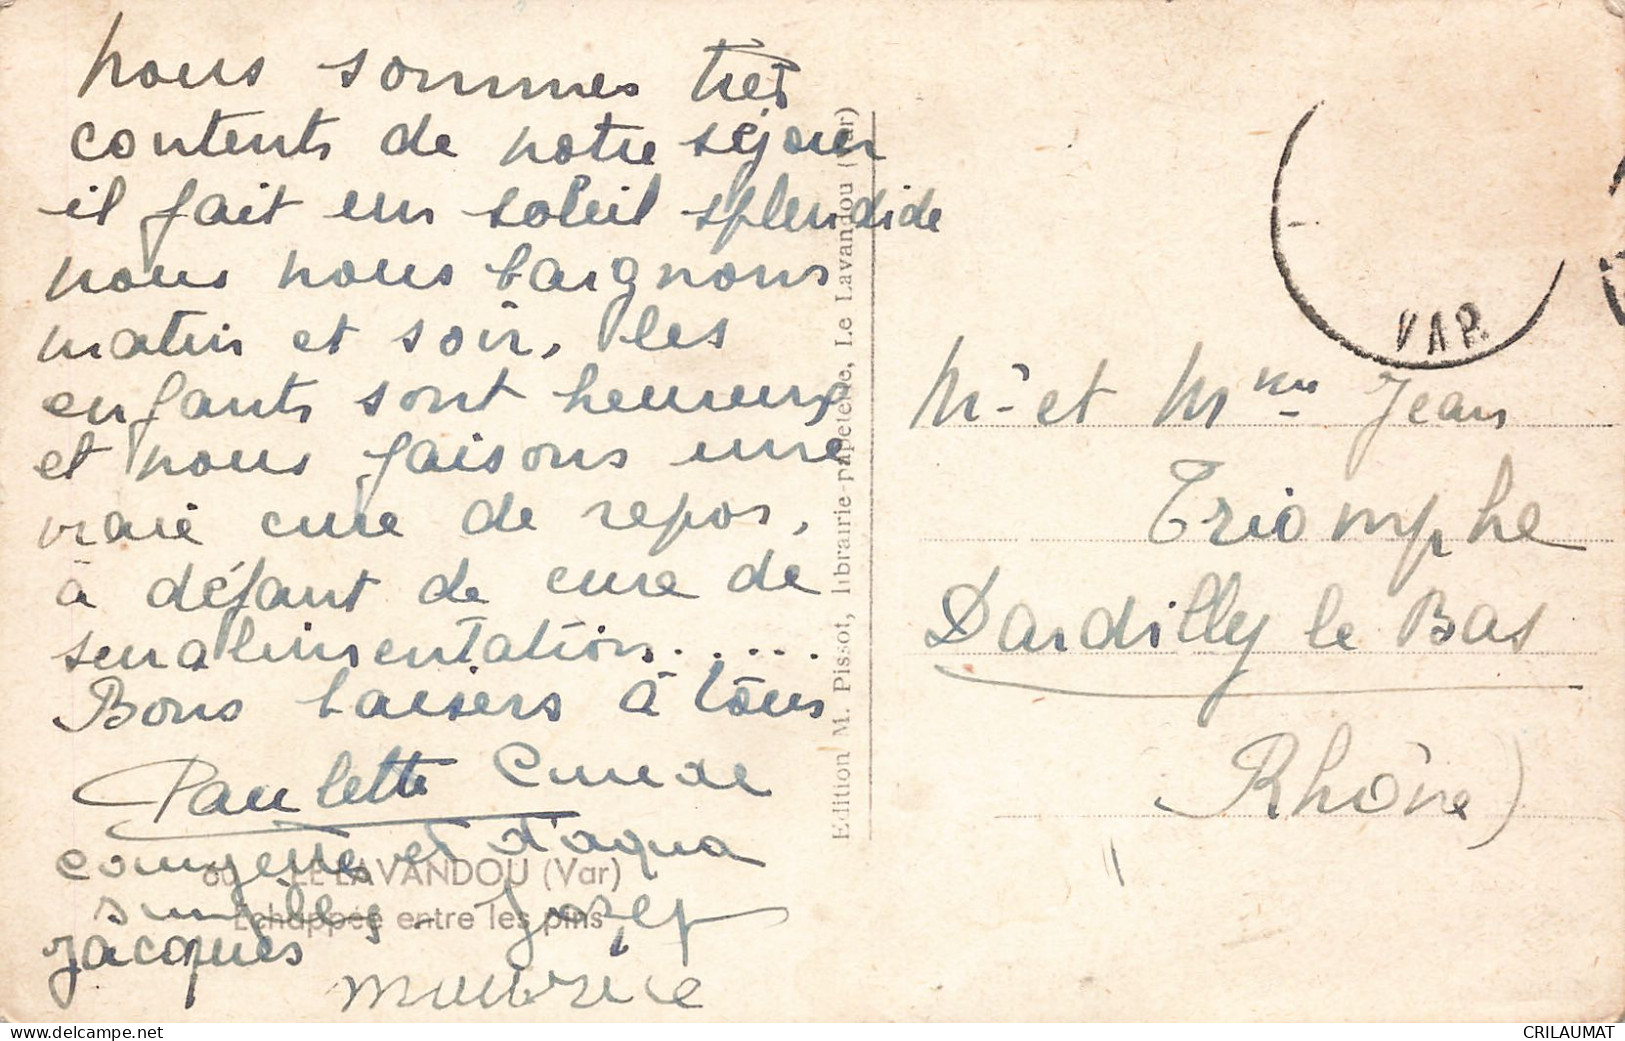 Nous sommes très
contents de notre séjour
il fait un soleil splendide
nous nous baignons
matin et soir, les
enfants sont heureux
et nous faisons une
vraie cure de repos,
à défaut de cure de
suralimentation.....
Bons baisers à tous
Paulette Cure de
courgette et d'aqua
simplex - Josef
Jacques
maurice
60 LE LAVANDOU (Var)
Echappée entre les pins
Edition M. Pissot, librairie-papeterie, Le Lavandou (Var)
VAR
Mr et Mme Jean
Triomphe
Dardilly le Bas
Rhône)
CRILAUMAT